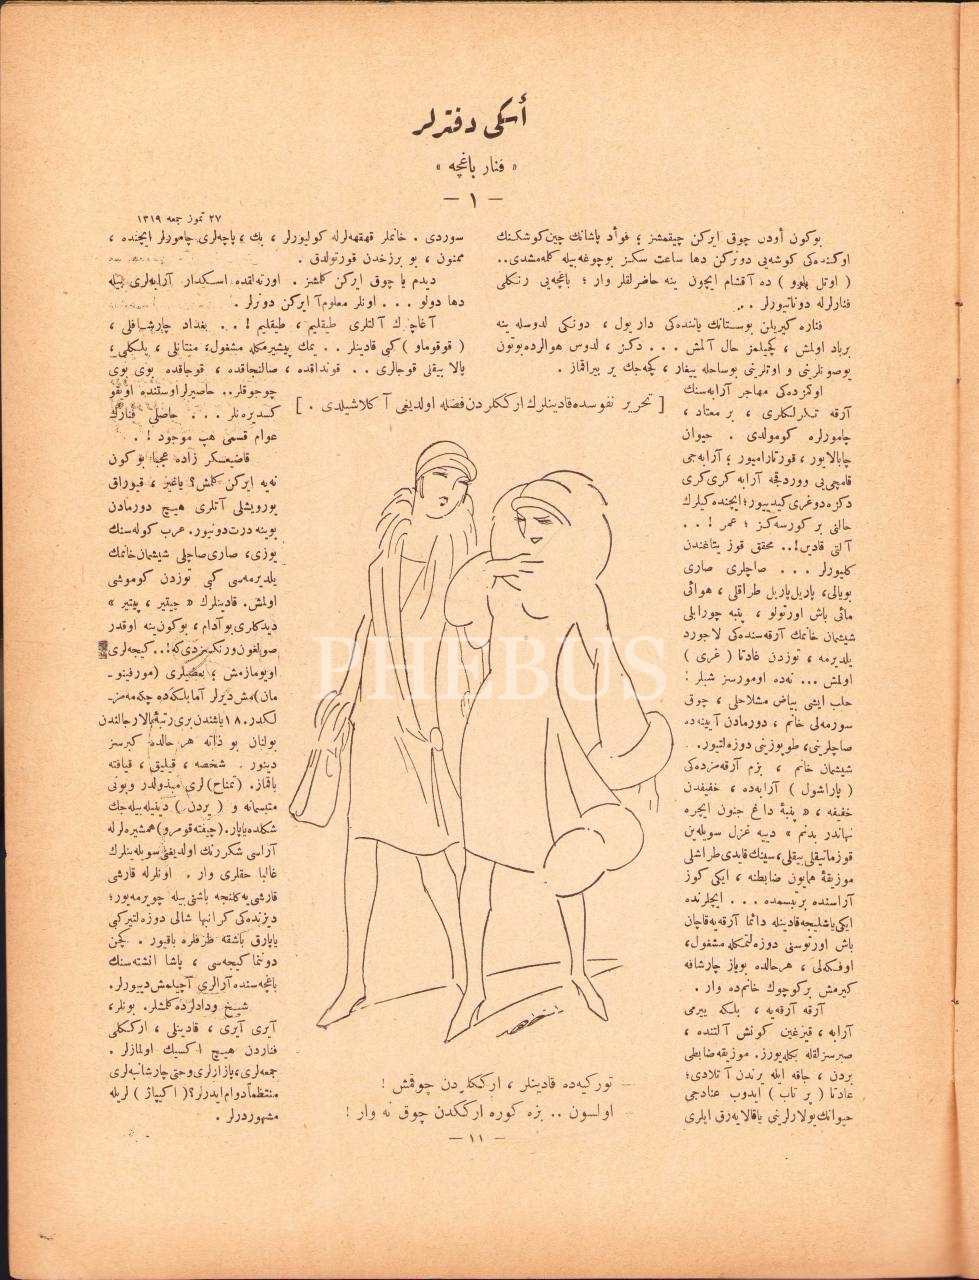 أسكى دفترلر
« فنار باغچه »
— ١ —
٢٧ تموز جمعه ٣١٩
بوكون أودن چوق ايركن چيقمشز ؛ فوأد پاشانك چين كوشكنك
اوكنده‌كى كوشه‌يى دونركن دها ساعت سكز بوچوغه بيله كلمه‌مشدى..
( اوتل پلوو ) ده آقشام ايچون ينه حاضرلقلر وار ؛ باغچه‌يى رنكلى
فنارلرله دوناتيورلر ..
فناره كيريلن بوستانك ياننده‌كى دار يول ، دونكى لدوسله ينه
برباد اولمش ، كچيلمز حال آلمش ... دكز ، لدوس هوالرده بوتون
يوصونلرينى و اوتلرينى بوساحله ييغار ، كچه‌جك ير بيراقماز .
اوكمزده‌كى مهاجر آرابه‌سنك
آرقه تكرلكلرى ، بر معتاد ،
چامورلره كومولدى . حيوان
چابالايور ، قورتارامايور ؛ آرابه‌جى
قامچى‌يى ووردقجه آرابه كرى كرى
دكزه دوغرى كيدييور؛ ايچنده كيلرك
حالنى بر كورسه‌كز ؛ عمر ! ..
آلتى قادين!.. محقق قوز يتاغندن
كليورلر ... صاچلرى صارى
بويالى، پاريل پاريل طراقلى ، هوائى
مائى باش اورتولو ، پنبه چورابلى
شيشمان خانمك آرقه‌سنده‌كى لاجورد
يلديرمه ، توزدن عادتا ( غرى )
اولمش ... نه‌ده اومورسز شيلر !
حلب ايشى بياض مشلاحلى ، چوق
سورمه‌لى خانم ، دورمادن آيينه‌ده
صاچلرينى، طوپوزينى دوزه‌لتيور.
شيشمان خانم ، بزم آرقه‌مزده‌كى
( پاراشول ) آرابه‌ده ، خفيفدن
خفيفه ، « پنبۀ داغ جنون ايچره
نهاندر بدنم » دييه غزل سويله‌ين
قوزماتيقلى بيقلى، سينك قايدى طراشلى
موزيقۀ همايون ضابطنه ، ايكى كوز
آراسنده بر تبسمده ... ايچلرنده
ايكى ياشليجه قادينله دائما آرقه‌يه قاچان
باش اورتوسنى دوزه‌لتمكله مشغول،
اوفكه‌لى ، هر حالده بوياز چارشافه
كيرمش بر كوچوك خانم ده وار .
آرقه آرقه‌يه ، بلكه ييرمى
آرابه ، قيزغين كونش آلتنده ،
صبرسزلقله بكله‌يورز. موزيقه ضابطى
بردن ، جاقه ايله يرندن آتلادى؛
عادتا ( پر تاب ) ايدوب عنادجى
حيوانك يولارلرينى ياقالايه‌رق ايلرى
سوردى . خانملر قهقهه‌لرله كوليورلر ، بك ، پاچه‌لرى چامورلر ايچنده ،
ممنون ، بو برزخدن قورتولدق .
ديدم يا چوق ايركن كلمشز . اورته‌لقده اسكدار آرابه‌لرى بيله
دها دولو ... اونلر معلوم‌آ ايركن دونرلر .
آغاچلرك آلتلرى طيقليم ، طيقليم !.. بغداد چارشافلى ،
( قوقوماو ) كبى قادينلر .. يمك پيشيرمكله مشغول، مينتانلى ، يلكلى ،
پالا بيقلى قوجالرى .. قونداقده ، صالنجاقده ، قوجاقده بوى بوى
چوجوقلر.. حاصيرلر اوستنده اويقو
كسديره‌نلر ... حاصلى فنارك
عوام قسمى هپ موجود !.
قاضيعسكر زاده عجبا بوكون
نه‌يه ايركن كلمش؟ ياغيز ، قيوراق
يورويشلى آتلرى هيچ دورمادن
بوينه درت دونيور. عرب كوله‌سنك
يوزى، صارى صاچلى شيشمان خانمك
يلديرمه‌سى كبى توزدن كوموشى
اولمش. قادينلرك « جيتير ، پيتير »
ديدكلرى بو آدام ، بوكون ينه اوقدر
صولغون و رنكسزدى كه!.. كيجه‌لرى
اويومازمش ؛ بعضيلرى (مورفينو-
مان)مش ديرلر آما بلكه‌ده چكه‌مه‌مز-
لكدر. ١٨ ياشندن برى رتبۀ بالا رجالندن
بولنان بو ذاته هر حالده كبرسز
دينور . شخصه ، قيليق ، قيافته
باقماز. (تمناح) لرى مبذولدر و يونى
متبسمانه و ( بردن ) دينيله‌بيله‌جك
شكلده ياپار. (چيفته قومرو) همشيره‌لرله
آراسى شكررنك اولديغى سويله‌ينلرك
غالبا حقلرى وار . اونلرله قارشى
قارشى‌يه كلنجه باشنى بيله چويرمه‌يور؛
ديزنده‌كى كرانبها شالى دوزه‌لتير كبى
ياپارق باشقه طرفلره باقيور . كچن
دونما كيجه‌سى ، پاشا انشته‌سنك
باغچه‌سنده آرالرى آچيلمش دييورلر.
شيخ ودادلرده كلمشلر. بونلر،
آيرى آيرى ، قادينلى ، ارككلى
فناردن هيچ اكسيك اولمازلر .
جمعه‌لرى، پازارلرى و حتى چارشانبه‌لرى
منتظماً دوام ايدرلر؟( اكيپاژ ) لريله
مشهوردرلر .
[ تحرير نفوسده قادينلرك ارككلردن فضله اولديغى آكلاشيلدى . ]
PHEBUS
— توركيه‌ده قادينلر ، ارككلردن چوقمش !
— اولسون .. بزه كوره ارككدن چوق نه وار !
— ١١ —